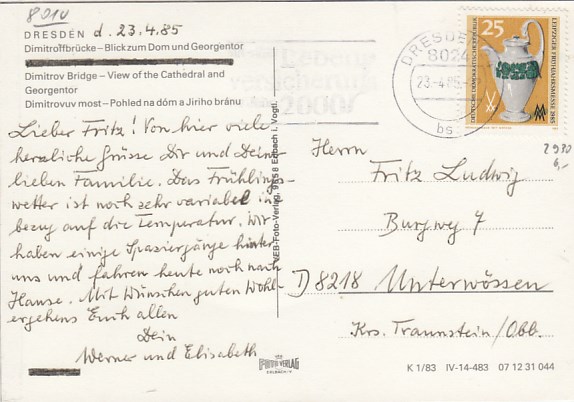 801v
DRESDEN d. 23.4.85
Dimitroffbrücke – Blick zum Dom und Georgentor
Dimitrov Bridge – View of the Cathedral and
Georgentor
Dimitrovuv most – Pohled na dóm a Jiřího bránu
Lieber Fritz! Von hier viele
herzliche Grüsse Dir und Deiner
lieben Familie. Das Frühlings-
wetter ist noch sehr variabel in
bezug auf die Temperatur. Wir
haben einige Spaziergänge hinter
uns und fahren heute noch nach
Hause. Mit Wünschen guten Wohl-
ergehens Euch allen
Dein
Werner und Elisabeth
VEB-Foto-Verlag, 9658 Erlbach i. Vogtl.
Lebens-
versicherung
2000
DRESDEN
8024
23-4.85
bs
25
LEIPZIGER FRÜHJAHRSMESSE 1985
DEUTSCHE DEMOKRATISCHE REPUBLIK
2930
6,-
Herrn
Fritz Ludwig
Burgweg 7
D 8218 Unterwössen
Krs. Traunstein/Obb.
VEB
FOTO VERLAG
ERLBACH/V
K 1/83 IV-14-483 07 12 31 044